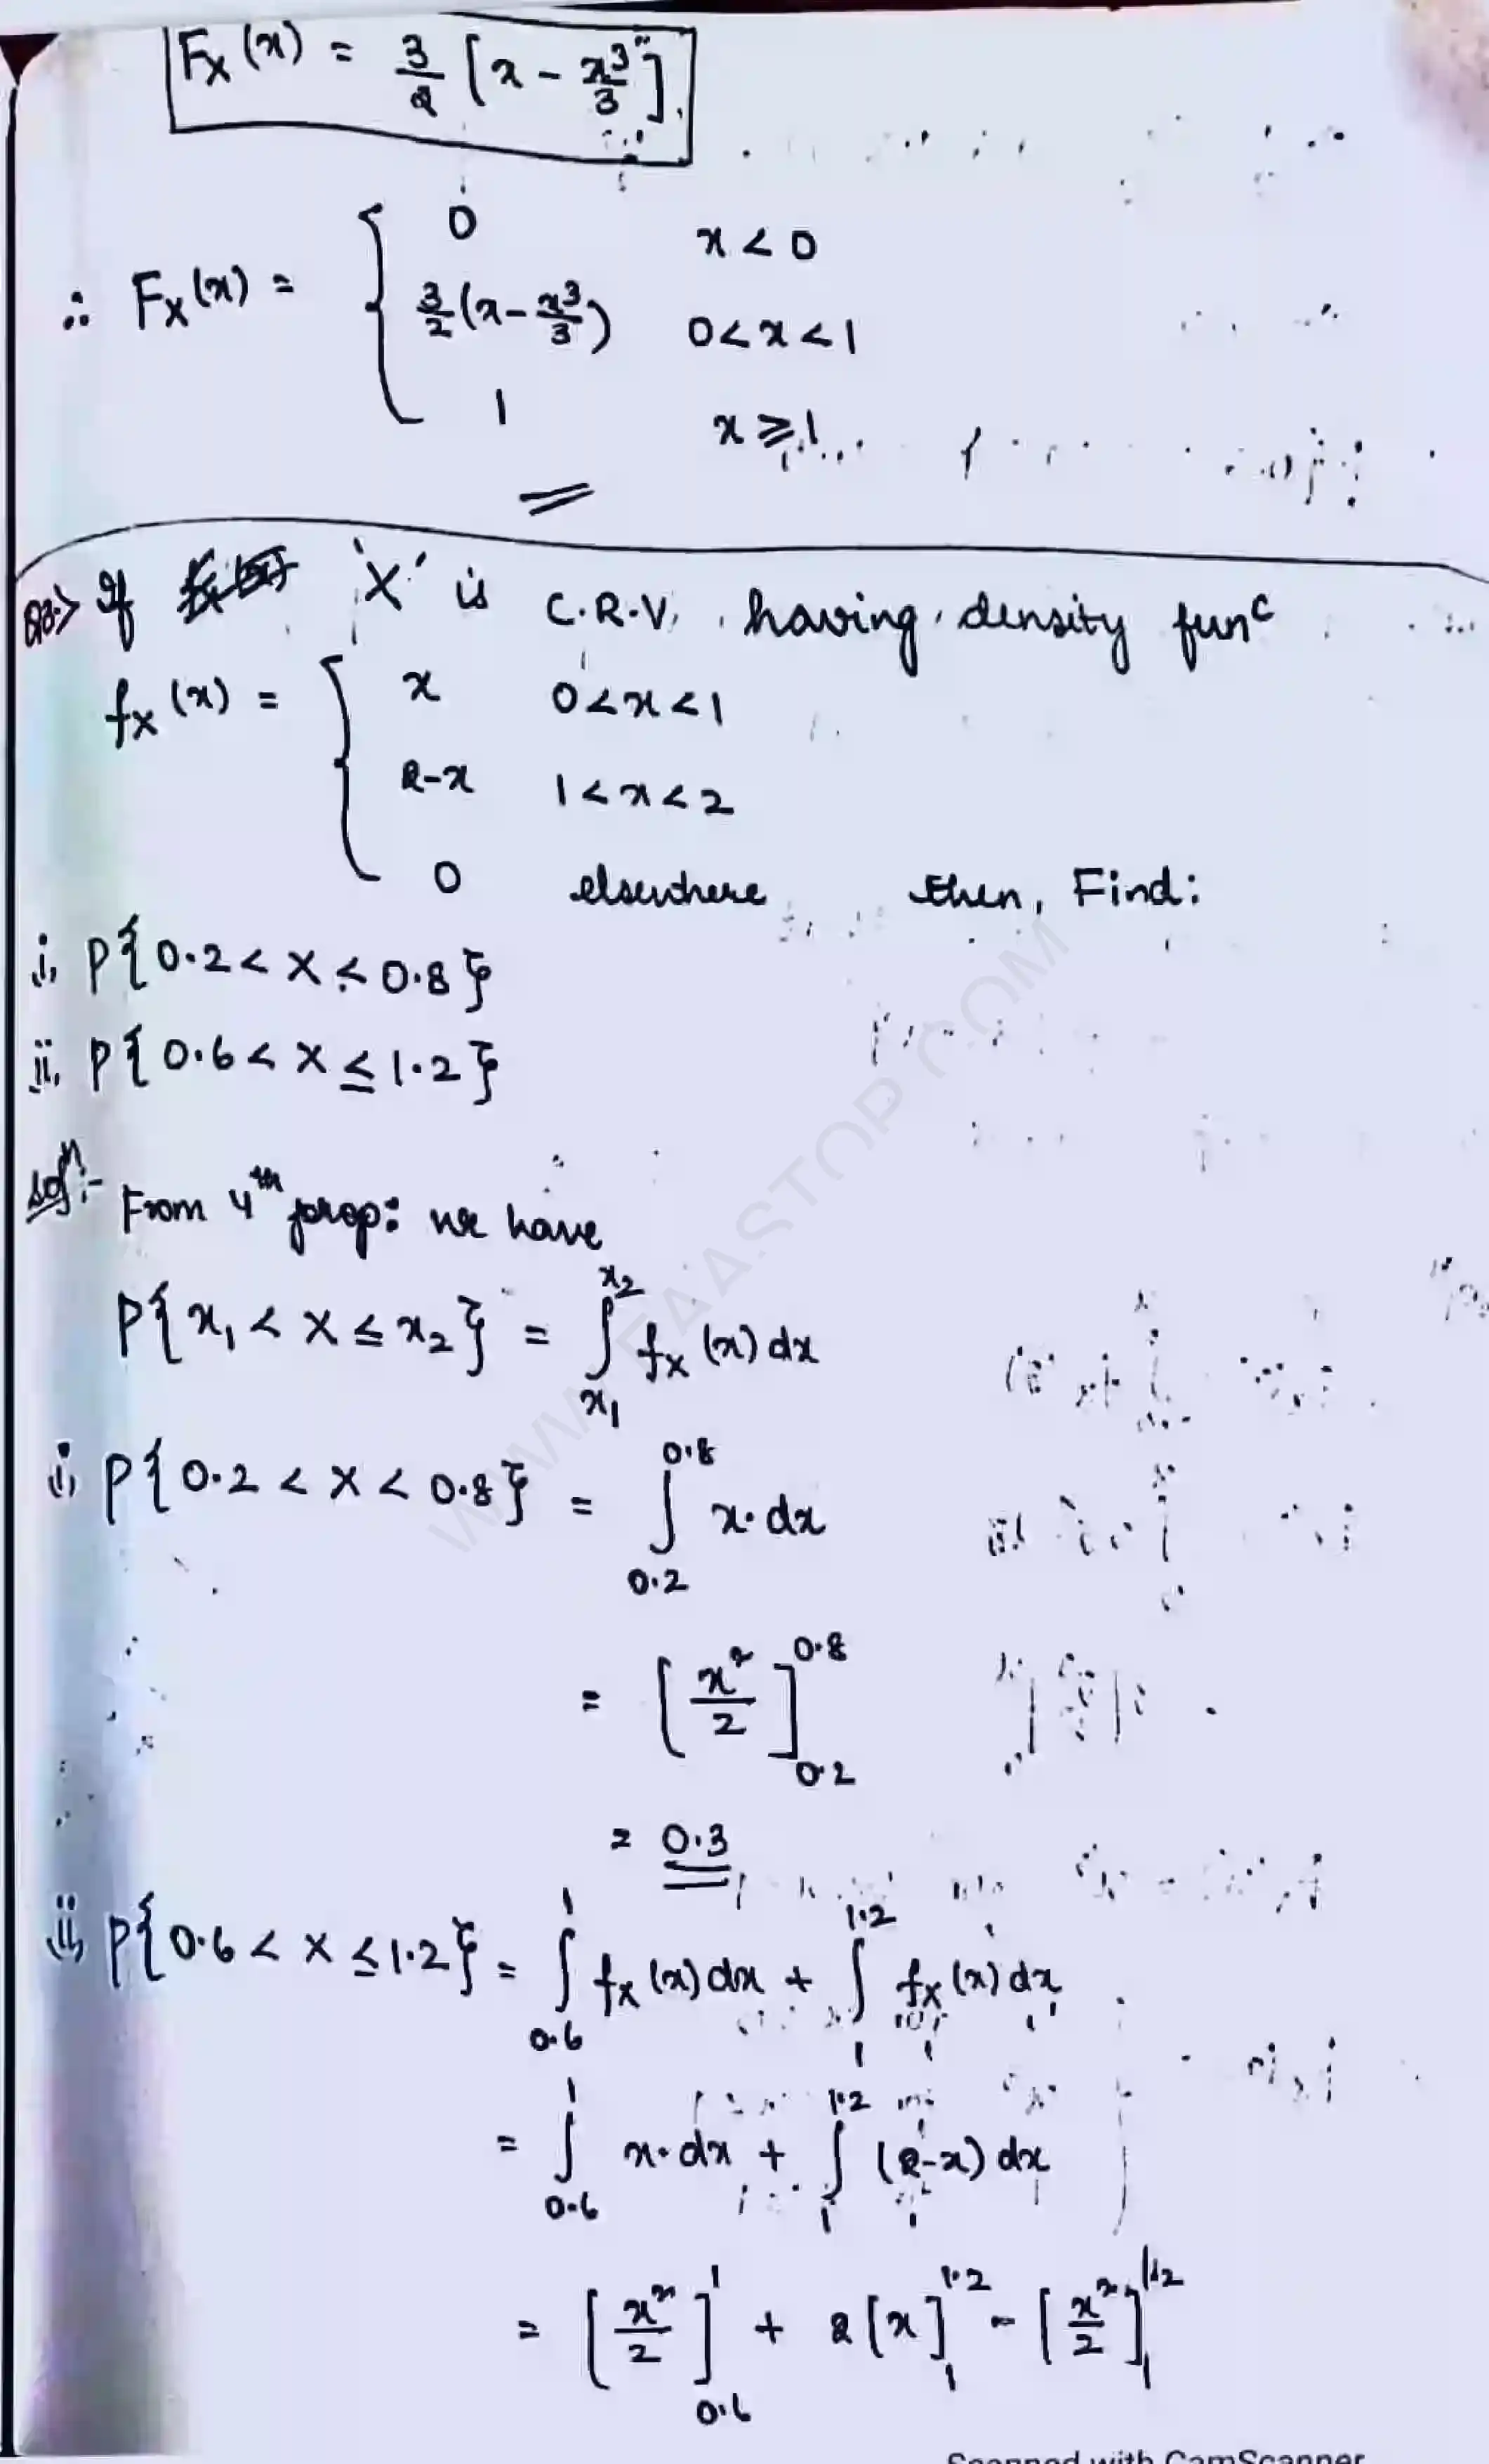 Fx(x) = 3/2 [x - x³/3]
∴ Fx(x) = { 0 x < 0
3/2(x - x³/3) 0 < x < 1
1 x ≥ 1
If 'X' is C.R.V. having density funᶜ
fx(x) = { x 0 < x < 1
2-x 1 < x < 2
0 elsewhere then, Find:
i, P{0.2 < X ≤ 0.8}
ii, P{0.6 < X ≤ 1.2}
Solⁿ:- From 4th prop: we have
P{x₁ < X ≤ x₂} = ∫_{x₁}^{x₂} fx(x) dx
i, P{0.2 < X < 0.8} = ∫_{0.2}^{0.8} x. dx
= [x²/2]_{0.2}^{0.8}
= 0.3
ii, P{0.6 < X ≤ 1.2} = ∫_{0.6}^{1} fx(x) dx + ∫_{1}^{1.2} fx(x) dx
= ∫_{0.6}^{1} x. dx + ∫_{1}^{1.2} (2-x) dx
= [x²/2]_{0.6}^{1} + 2[x]_{1}^{1.2} - [x²/2]_{1}^{1.2}
WWW.FAASTOP.COM
Scanned with CamScanner